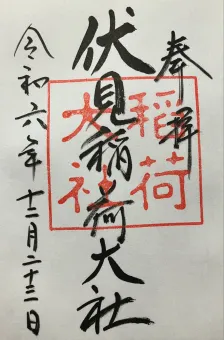 奉拝
伏見稲荷大社
稲荷
大社
令和六年十二月二十二日